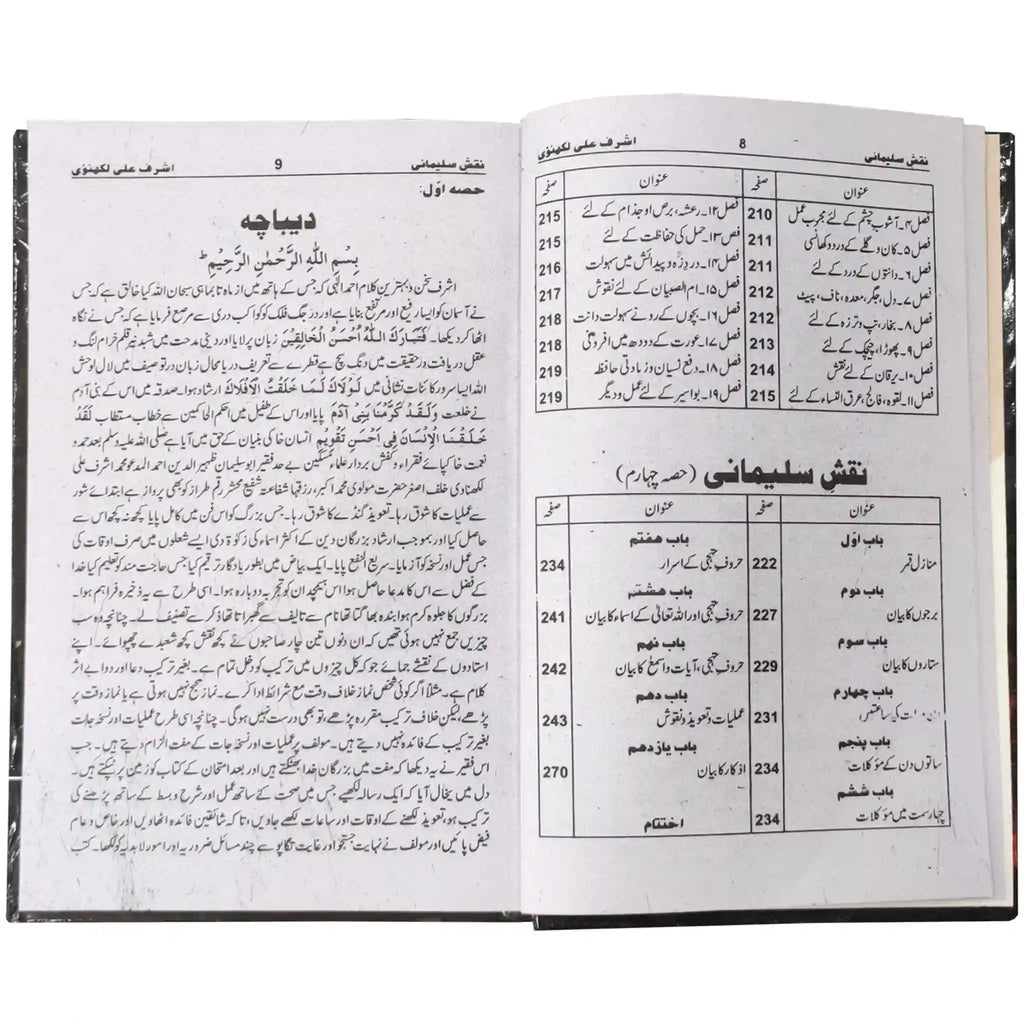 نقش سلیمانی 8 اشرف علی لکھنوی
عنوان صفحہ عنوان صفحہ
فصل ۴۔ آشوب چشم کے لئے مجرب عمل 210 فصل ۱۲۔ رعشہ، برص اوجذام کے لئے 215
فصل ۵۔ کان و گلے کے درد و کھانسی 211 فصل ۱۳۔ حمل کی حفاظت کے لئے 215
فصل ۶۔ دانتوں کے درد کے لئے 211 فصل ۱۴۔ دردِزہ و پیدائش میں سہولت 216
فصل ۷۔ دل، جگر، معدہ، ناف، پیٹ 212 فصل ۱۵۔ ام الصبیان کے لئے نقوش 217
فصل ۸۔ بخار، تپ و لرزہ کے لئے 212 فصل ۱۶۔ بچوں کے رونے سہولت دانت 218
فصل ۹۔ پھوڑا، چیچک کے لئے 213 فصل ۱۷۔ عورت کے دودھ میں افزوگی 218
فصل ۱۰۔ یرقان کے لئے نقش 214 فصل ۱۸۔ دفع نسیان و زیادتی حافظہ 219
فصل ۱۱۔ لقوہ، فالج، عرق النساء کے لئے 215 فصل ۱۹۔ بواسیر کے لئے عمل و دیگر 219
نقشِ سلیمانی (حصہ چہارم)
عنوان صفحہ عنوان صفحہ
باب اوّل باب ہفتم
منازل قمر 222 حروف تہجی کے اسرار 234
باب دوم باب ہشتم
برجوں کا بیان 227 حروف تہجی اور اللہ تعالیٰ کے اسماء کا بیان 241
باب سوم باب نہم
ستاروں کا بیان 229 حروف تہجی، آیات و اسمع کا بیان 242
باب چہارم باب دہم
کی ساعتیں 231 عملیات و تعویذ و نقوش 243
باب پنجم باب یازدهم
ساتوں دن کے مؤکلات 234 اذکار کا بیان 270
باب ششم
چہار سمت میں مؤکلات 234 اختتام
نقش سلیمانی 9 اشرف علی لکھنوی
حصہ اوّل:
دیباچہ
بِسْمِ اللّٰهِ الرَّحْمٰنِ الرَّحِيْمِ ط
اشرف سخن و بہترین کلام احمد الٰہی کہ جس کے ہاتھ میں از ماہ تا بماہی سبحان اللہ کیا خالق ہے کہ جس
نے آسمان کو ایسا رفیع اور مرتفع بنایا ہے اور درجک فلک کو کواکب دری سے مرصع فرمایا ہے کہ جس نے نگاہ
اٹھا کر دیکھا۔ فَتَبَارَكَ اللّٰهُ اَحْسَنُ الْخَالِقِيْنَ زبان پر لایا اور دینی مدحت میں شبدیز قلم خرام لنگ و
عقل دریافت ورحقیقت میں دنگ سچ ہے قطرے سے تعریف دریا محال زبان در توصیف میں لال لوحش
اللہ ایسا سرور کائنات نشانی میں لَوْلَاكَ لَمَا خَلَقْتُ الْاَفْلَاكَ ارشاد ہوا۔ صدقہ میں اس کے بنی آدم
نے خلعت وَلَقَدْ كَرَّمْنَا بَنِىْ آدَمَ پایا اور اس کے طفیل میں احکم الحاکمین سے خطاب مستطاب لَقَدْ
خَلَقْنَا الْاِنْسَانَ فِىْ اَحْسَنِ تَقْوِيْمِ انسان خاکی بنیان کے حق میں آیا ہے صلی اللہ علیہ وسلم بعد حمد و
نعمت خاکپائے فقراء و کفش بردار علماء مسکین بے حد فقیر ابو سلیمان ظہیر الدین احمد المدعو محمد اشرف علی
لکھنادی خلف اصغر حضرت مولوی محمد اکبر، رزقہا شفاعتہ شفیع محشر رقم طراز کو بھی پرواز ہے ابتدائے شور
سے عملیات کا شوق رہا۔ تعویذ گنڈے کا شوق رہا۔ جس بزرگ کو اس فن میں کامل پایا کچھ نہ کچھ اس سے
حاصل کیا اور بموجب ارشاد بزرگان دین کے اکثر اسماء کی زکوٰۃ دی ایسے شعلوں میں صرف اوقات کی
جس عمل اور نسخہ کو آزمایا۔ سریع النفع پایا۔ ایک بیاض میں بطور یادگار ترقیم کیا جس حاجت مند کو تعلیم کیا خدا
کے فضل سے اس کا مدعا حاصل ہوا اس ہیچمدان کو تجربہ دوبارہ ہوا۔ اسی طرح سے یہ ذخیرہ فراہم ہوا۔
بزرگوں کا جلوہ کرم ہوا بندہ بھاگتا تھا نام سے تالیف سے گھبراتا تھا ذکر سے تصنیف لے۔ چنانچہ وہ سب
چیزیں جمع نہیں ہوئی تھیں کہ ان دنوں تین چار صاحبوں نے کچھ نقش کچھ شعبدے چھپوائے۔ اپنے
استادوں کے نقشے جمائے جو کہ کل چیزوں میں ترکیب کو دخل تمام ہے۔ بغیر ترکیب دعا اور دوا بے اثر
کلام ہے۔ مثلاً اگر کوئی شخص نماز خلاف وقت مع شرائط ادا کرے۔ نماز صحیح نہیں ہوتی ہے یا نماز وقت پر
پڑھے، لیکن خلاف ترکیب مقررہ پڑھے، تو بھی درست نہیں ہوگی۔ چنانچہ اسی طرح عملیات اور نسخہ جات
بغیر ترکیب کے فائدہ نہیں دیتے ہیں۔ مولف پر عملیات اور نسخہ جات کے مفت الزام دیتے ہیں۔ جب
اس فقیر نے یہ دیکھا کہ مفت میں بزرگان خدا بھٹکتے ہیں اور بعد امتحان کے کتاب کو زمین پر پٹکتے ہیں۔
دل میں یخال آیا کہ ایک رسالہ لکھیے جس میں صحت کے ساتھ عمل اور شرح و بسط کے ساتھ پڑھنے کی
ترکیب ہو، تعویذ لکھنے کے اوقات اور ساعات لکھے جاویں، تا کہ شائقین فائدہ اٹھاویں اور خاص و عام
فیض پائیں اور مولف نے نہایت جستجو اور غایت تگاپو سے چند مسائل ضروریہ اور امور لابدیہ کو لکھا۔ کتب